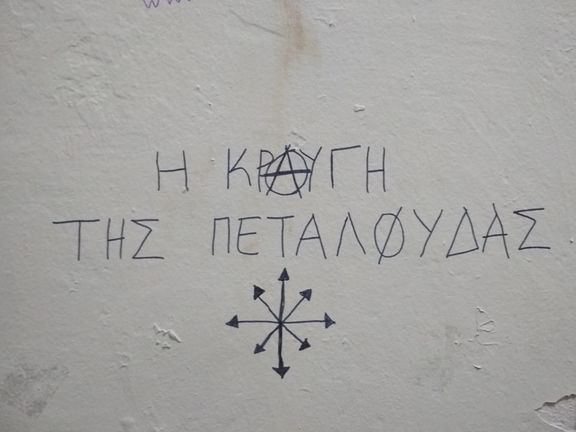 Η ΚΡΑΥΓΗ
ΤΗΣ ΠΕΤΑΛΟΥΔΑΣ